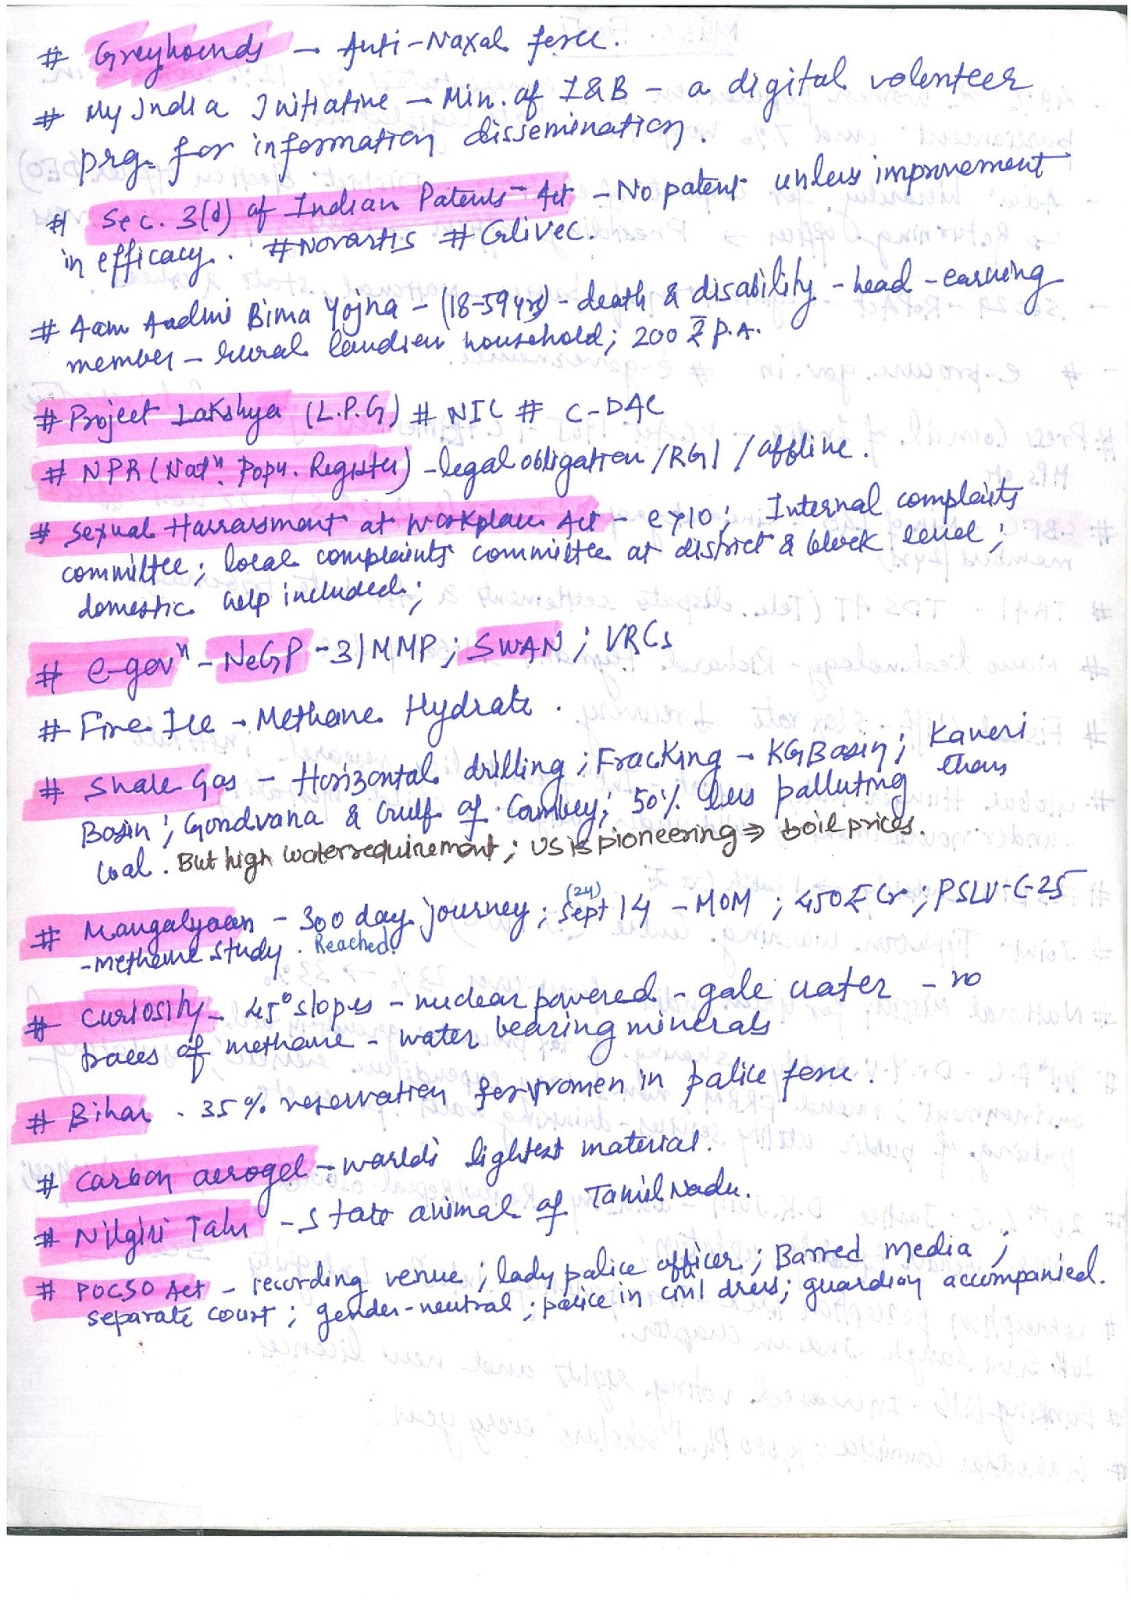 # Greyhounds → Anti-Naxal force.
# My India Initiative – Min. of I&B – a digital volenteer
prg. for information dissemination.
# Sec. 3(d) of Indian Patents Act – No patent unless improvement
in efficacy. #Novartis #Glivec.
# Aam Aadmi Bima Yojna – (18-59yrs) – death & disability – head – earning
member – rural landless household; 200 ₹ p.A.
# Project Lakshya (L.P.G) # NIC # C-DAC
# NPR (Natⁿ. Popu. Register) – legal obligation /RGI / offline.
# Sexual Harrasment at workplace Act – e>10; Internal complaints
committee; local complaints committee at district & block level;
domestic help included;
# e-govⁿ – NeGP – 31 MMP; SWAN; VRCs
# Fire Ice → Methane Hydrate.
# Shale Gas – Horizontal drilling; Fracking – KG Basin; Kaveri
Basin; Gondvana & Gulf of Cambey; 50% less polluting than
coal. But high water requirement; US is pioneering ⇒ ↓ oil prices.
# Mangalyaan – 300 day journey; (24) Sept 14 – MOM; 450 ₹ Cr; PSLV-C-25
– methane study. Reached.
# Curiosity – 45° slopes – nuclear powered – gale crater – no
traces of methane – water bearing minerals
# Bihar . 35% reservation for women in police force.
# Carbon aerogel – world's lightest material.
# Nilgiri Tahr – State animal of Tamil Nadu.
# POCSO Act – recording venue; lady police officer; Barred media;
separate court; gender-neutral; police in civil dress; guardian accompanied.